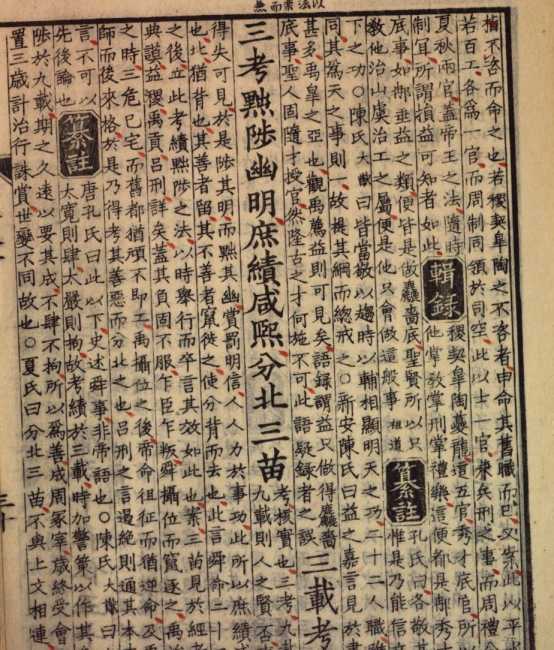 不咨而命之也若稷契皋陶之不咨者申命其舊職而已又案此以平水
若百工各爲一官而周制同領於司空此以士一官兼兵刑之事而周禮
夏秋兩官蓋帝王之法隨時
制宜所謂損益可知者如此
輯錄
稷契皋陶夔龍這五官秀才底官所以
他掌教掌刑掌禮樂這便都是那秀才
底事如那垂益之類便皆是底聖賢所以只
教他治山虞治工之屬便是他只會做這般事 祖道
纂註
孔氏曰各敬其
惟是乃能信立
下之功○陳氏大猷曰皆當敬以趨時以輔相顯明天之功二十二人職雖
同其爲天之事則一故提其綱而總戒之○新安陳氏曰益之嘉言見於書
甚多禹皋之亞也觀禹薦益則可見矣語録謂益只做得
底事聖人固隨才授官然隆古之才何施不可此語疑録者之誤
三載考
三考黜陟幽明庶績咸熙分北三苗
考核實也三考九載
九載則人之賢否
得失可見於是陟其明而黜其幽賞罰明信人人力於事功此所以庶績
也北猶背也其善者留其不善者竄徙之使分背而去也此言舜命二十二
之後立此考績黜陟之法以時舉行而卒言其效如此也案三苗見於經者
典謨益稷禹貢吕刑詳矣蓋其負固不服乍臣乍叛舜攝位而竄逐之禹治
之時三危已宅而舊都猶頑不即工禹攝位之後帝命徂征而猶逆命及
師而後來格於是乃得考其善惡而分北之也吕刑之言遏絶則通其本末
言不可以
先後論也
纂註
唐孔氏曰此以下史述舜事非帝語也○陳氏大猷曰
大寬則肆太嚴則拘故考績於三載時加警策以作其
陟於九載期之久遠以要其成不肆不拘所以爲善成周冡宰歲終受會
置三歲計治行誅賞世變不同故也○夏氏曰分北三苗不與上文相連